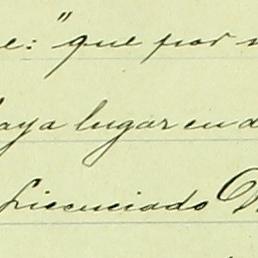 e: "que por
aya lugar en d
Licenciado D